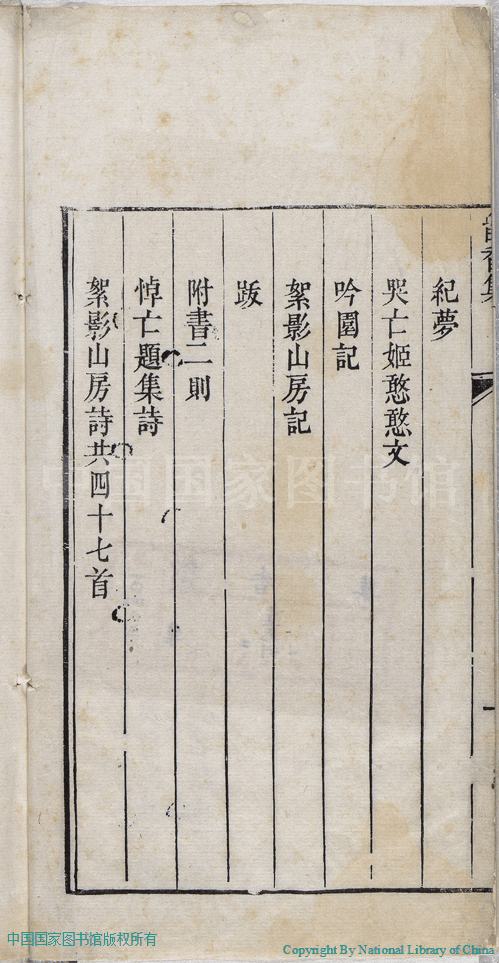 香集
紀夢
哭亡姬憨憨文
吟園記
絮影山房記
跋
附書二則
悼亡題集詩
絮影山房詩共四十七首
中国国家图书馆
中国国家图书馆版权所有
Copyright By National Library of China